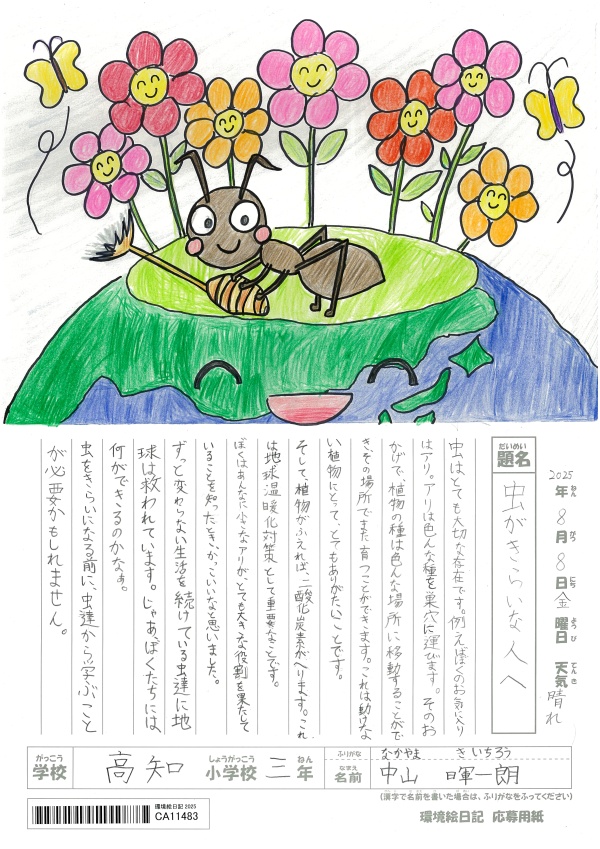 2025年 8月 8日 金曜日 天気 晴れ
ねん がつ にち ようび てんき
だいめい
題名 虫がきらいな人へ
虫はとても大切な存在です。例えばぼくのお気に入り
はアリ。アリは色んな種を巣穴に運びます。そのお
かげで、植物の種は色んな場所に移動することがで
き、その場所でまた育つことができます。これは動けな
い植物にとって、とてもありがたいことです。
そして、植物がふえれば、二酸化炭素がへります。これ
は地球温暖化対策として重要なことです。
ぼくはあんなに小さなアリが、とても大きな役割を果たして
いることを知ったとき、かっこいいなと思いました。
ずっと変わらない生活を続けている虫達に地
球は救われています。じゃあ、ぼくたちには
何ができるのかなぁ。
虫をきらいになる前に、虫達から学ぶこと
が必要かもしれません。
がっこう しょうがっこう ねん ふりがな なかやま きいちろう
学校 高知 小学校 三年 なまえ 名前 中山 暉一朗
(漢字で名前を書いた場合は、ふりがなをふってください)
環境絵日記 2025
CA11483
環境絵日記 応募用紙